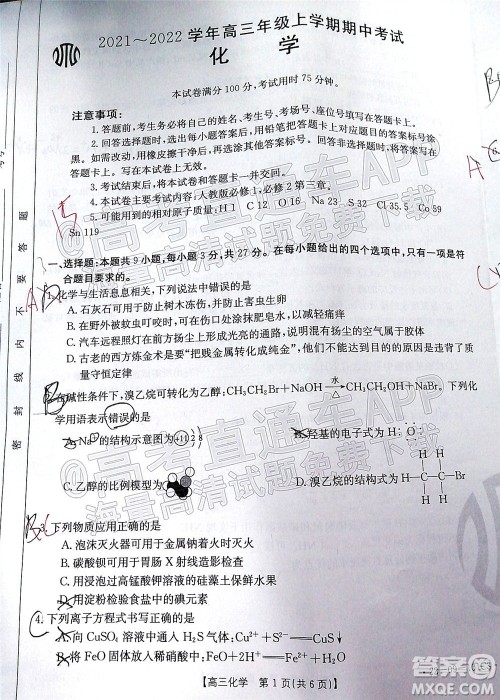 2021～2022学年高三年级上学期期中考试
化 学
本试卷满分100分，考试用时75分钟。
注意事项：
1. 答题前，考生务必将自己的姓名、考生号、考场号、座位号填写在答题卡上。
2. 回答选择题时，选出每小题答案后，用铅笔把答题卡上对应题目的答案标号涂黑。如需改动，用橡皮擦干净后，再选涂其他答案标号。回答非选择题时，将答案写在答题卡上。写在本试卷上无效。
3. 考试结束后，将本试卷和答题卡一并交回。
4. 本试卷主要考试内容：人教版必修1，必修2第三章。
5. 可能用到的相对原子质量：H 1 C 12 O 16 Na 23 Si 33.5 Co 59
Sn 119
一、选择题：本题共9小题，每小题3分，共27分。在每小题给出的四个选项中，只有一个选项是符合题目要求的。
1. 化学与生活息息相关，下列说法中错误的是
A. 石灰石可用于防止树木冻伤，并防止害虫生卵
B. 在野外被蚊虫叮咬时，可在伤口处涂抹肥皂水，以减轻瘙痒
C. 汽车远程照明灯照出光亮的通路，说明混有扬尘的空气属于胶体
D. 古老的西方炼金术是要“把贱金属转化成纯金”，他们所需要的条件均不符合质量守恒定律
2. 在碱性条件下，溴乙烷可转化为乙醇：CH₃CH₂Br＋NaOH →(水, △) CH₃CH₂OH＋NaBr。下列化
学用语表示错误的是
A. Na⁺的结构示意图为 +10 2 8
B. 羟基的电子式为 H:O:
C. 乙醇的比例模型为
D. 溴乙烷的结构式为 H—C—C—Br
H H
H H
3. 下列物质应用正确的是
A. 泡沫灭火器可用于金属钠着火时灭火
B. 碳酸钡可用于胃肠X射线造影检查
C. 浸泡过高锰酸钾溶液的硅藻土保鲜水果
D. 用淀粉检验食盐中的碘元素
4. 下列离子方程式书写正确的是
A. 向CuSO₄溶液中通入H₂S气体：Cu²⁺＋S²⁻══CuS↓
B. 将FeO固体放入稀硝酸
【高三化学 第1页（共6页）】
密 封 线 内 不 要 答 题
高考直通车APP
海量高清试题免费下载
高考直通车APP
海量高清试题免费下载
答案圈